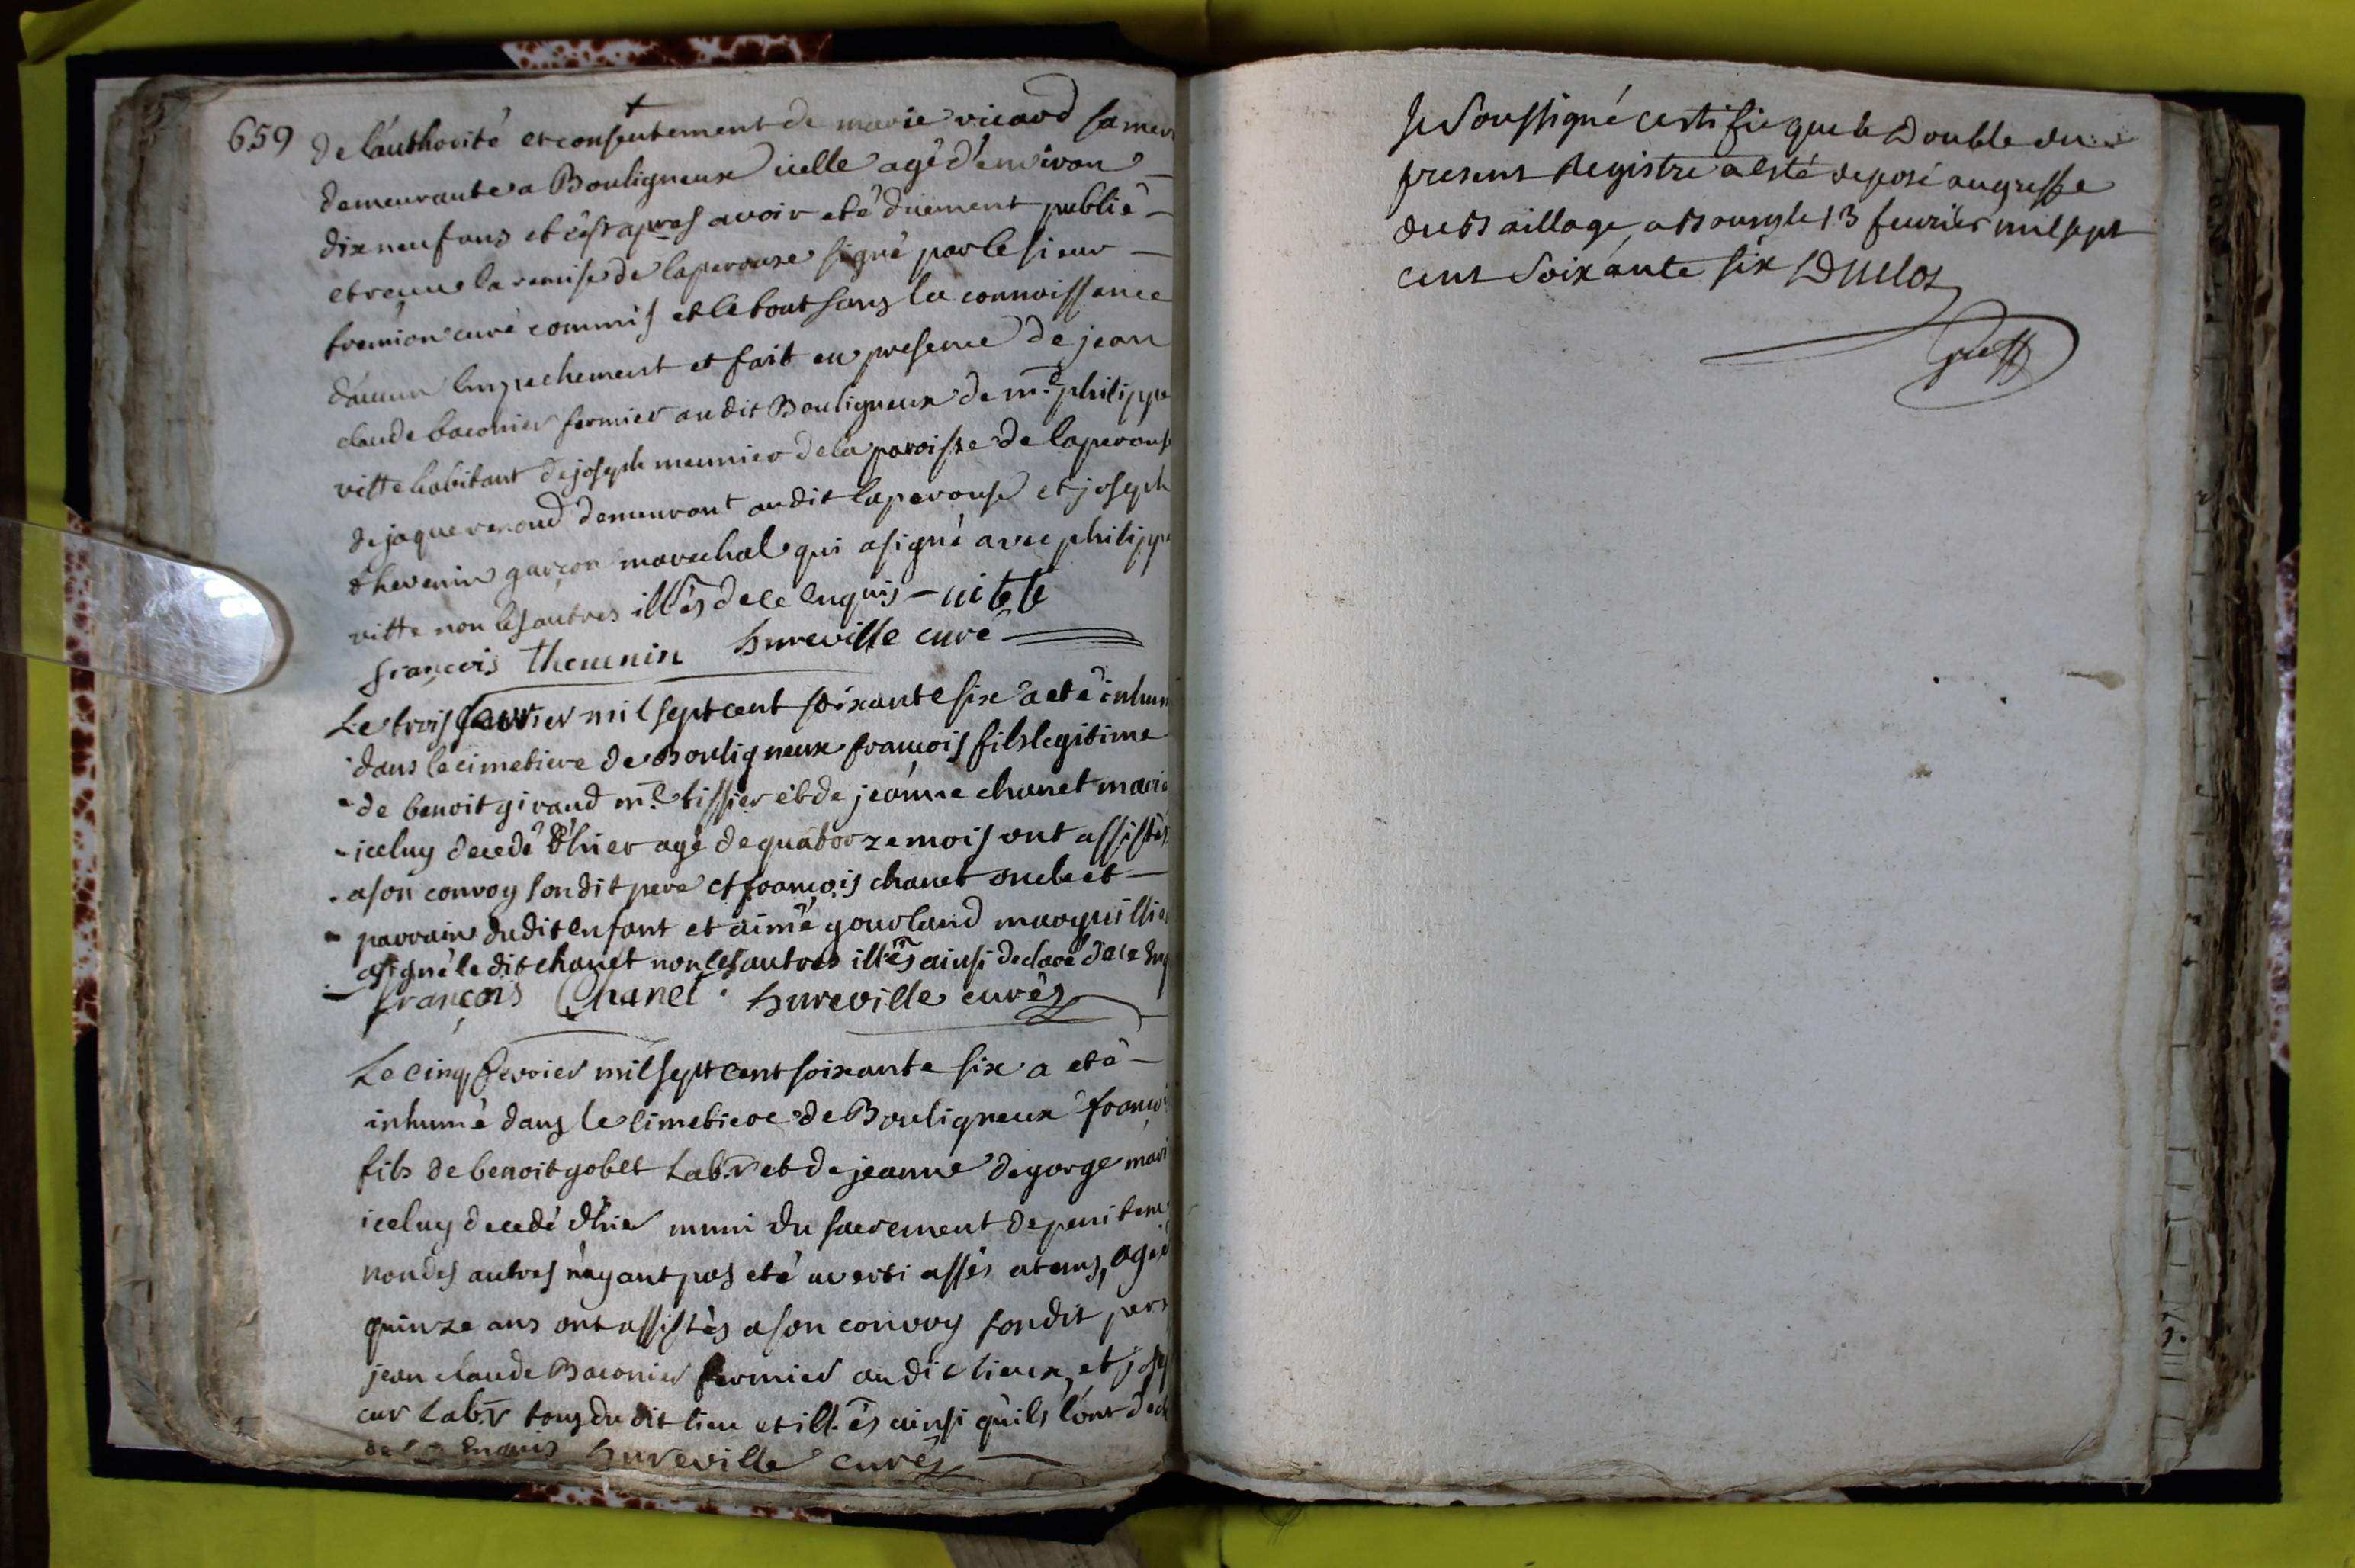 659
de l'authorité et consentement de marie ricard sa mer
demeurante a Bouligneux icelle agé d'environ
dix neuf ans et c'est apres avoir eté duement publié
et reçeu la remise de laperouse signé par le sieur
tremion curé commis et le tout sans la connoissance
d'aucun Empechement et fait en presence de jean
claude baconier fermier au dit Bouligneux de me philippe
vitte habitant de joseph meunier de la paroisse de laperouse
de jaque renoud demeurant au dit laperouse et joseph
thevenin garçon marechal qui a signé avec philippe
vitte non les autres illes de ce Enquis - vitte
françois thevenin hureville curé
Le trois fevrier mil sept cent soixante six a eté inhum
dans le cimetiere de Bouligneux françois fils legitime
de benoit giraud me tissier et de jeanne chanet marié
iceluy decedé d'hier agé de quatorze mois ont assistés
a son convoy son dit pere et françois chanet oncle et
parrain du dit enfant et aimé gourland marguillier
a signé le dit chanet non les autres illes ainsi declaré de ce Enq
françois Chanet hureville curé
Le cinq fevrier mil sept cent soixante six a eté
inhumé dans le cimetiere de Bouligneux françoi
fils de benoit gobet Labr et de jeanne degorge mari
iceluy decedé d'hier muni du sacrement de penitence
non des autres n'ayant pas eté averti assés a tems, agé
quinze ans ont assistés a son convoy son dit pere
jean claude Baconier fermier au dit lieux, et jos
cur Labr tous du dit lieu et illes ainsi qu'ils l'ont decl
de ce Enquis hureville curé
Je Soussigné certifie que le Double du
present Registre a esté deposé au greffe
du Baillage, a Bourg le 13 fevrier mil sept
cent Soixante six Duclos
greff